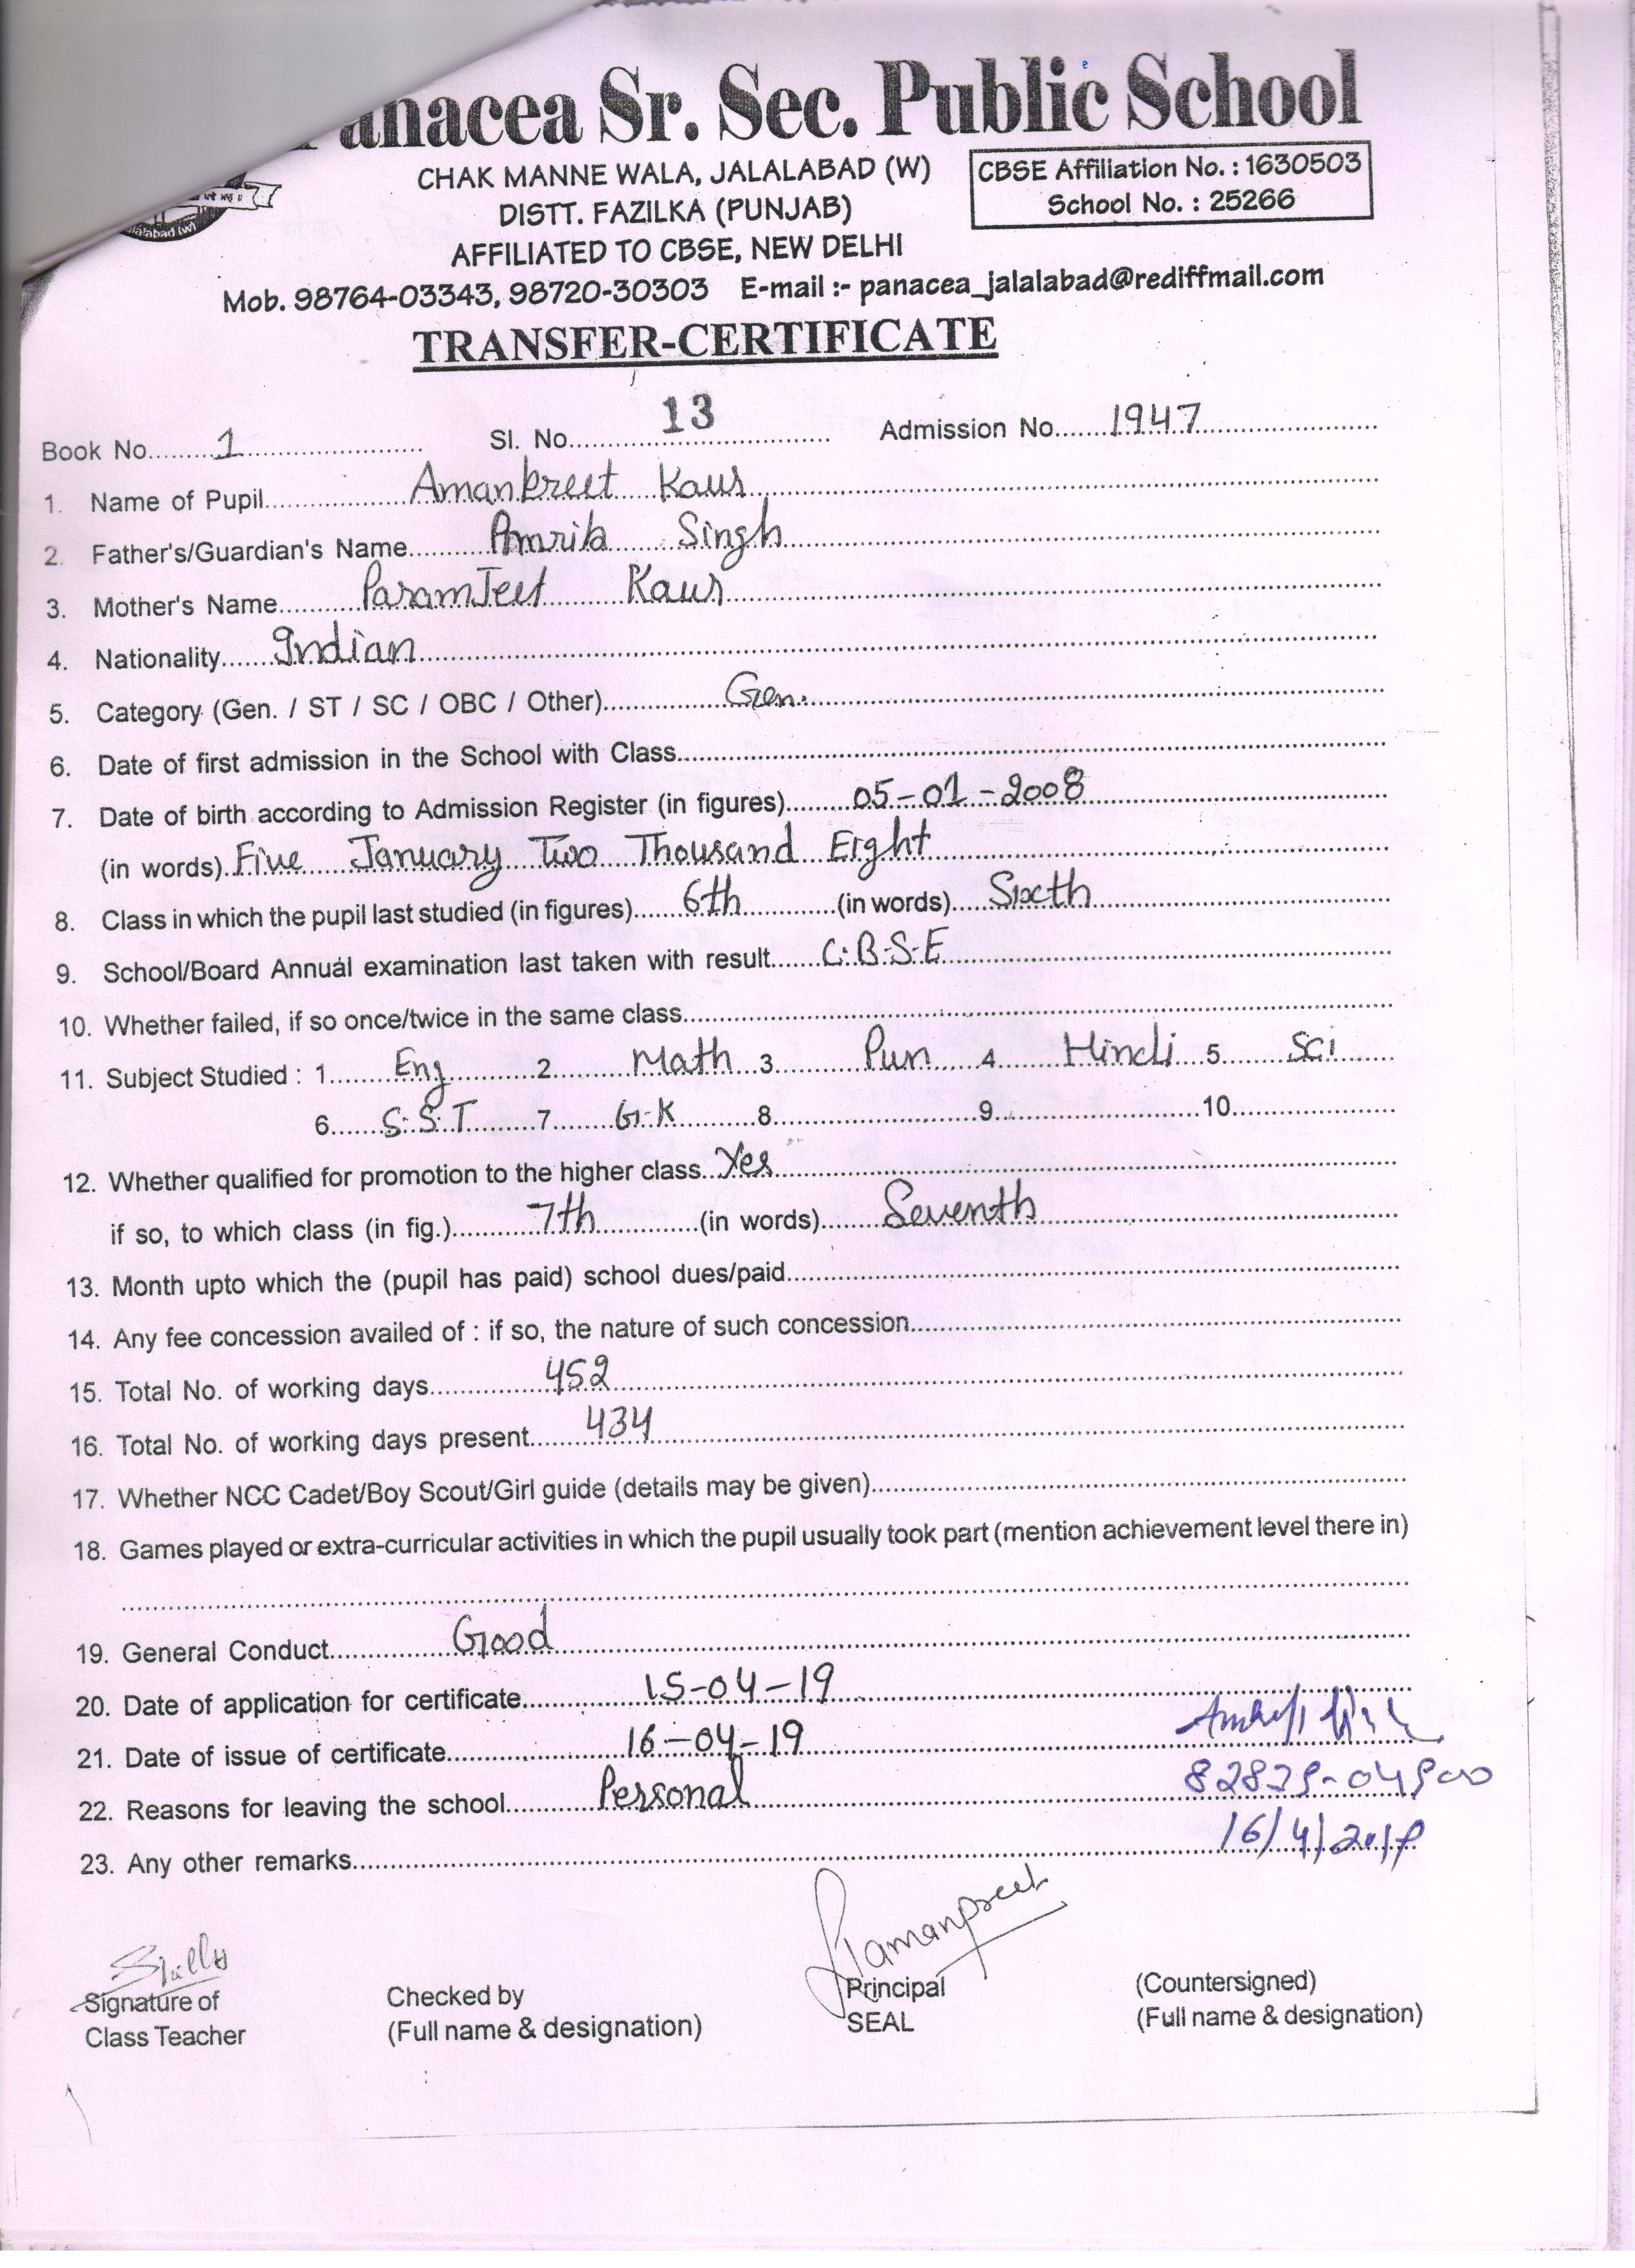 anacea Sr. Sec. Public School
CHAK MANNE WALA, JALALABAD (W)
DISTT. FAZILKA (PUNJAB)
AFFILIATED TO CBSE, NEW DELHI
CBSE Affiliation No. : 1630503
School No. : 25266
Mob. 98764-03343, 98720-30303 E-mail :- panacea_jalalabad@rediffmail.com
TRANSFER-CERTIFICATE
Book No. 1 Sl. No. 13 Admission No. 1947
1. Name of Pupil Amankreet Kaur
2. Father's/Guardian's Name Amrik Singh
3. Mother's Name ParamJeet Kaur
4. Nationality Indian
5. Category (Gen. / ST / SC / OBC / Other) Gen.
6. Date of first admission in the School with Class
7. Date of birth according to Admission Register (in figures) 05-01-2008
(in words) Five January Two Thousand Eight
8. Class in which the pupil last studied (in figures) 6th (in words) Sixth
9. School/Board Annual examination last taken with result C.B.S.E
10. Whether failed, if so once/twice in the same class
11. Subject Studied : 1 Eng 2 Math 3 Pun 4 Hindi 5 Sci
6 S.S.T 7 G.K 8 9 10
12. Whether qualified for promotion to the higher class Yes
if so, to which class (in fig.) 7th (in words) Seventh
13. Month upto which the (pupil has paid) school dues/paid
14. Any fee concession availed of : if so, the nature of such concession
15. Total No. of working days 452
16. Total No. of working days present 434
17. Whether NCC Cadet/Boy Scout/Girl guide (details may be given)
18. Games played or extra-curricular activities in which the pupil usually took part (mention achievement level there in)
19. General Conduct Good
20. Date of application for certificate 15-04-19
21. Date of issue of certificate 16-04-19
82839-04900
22. Reasons for leaving the school Personal
16/4/2019
23. Any other remarks
Signature of
Class Teacher
Checked by
(Full name & designation)
Principal
SEAL
(Countersigned)
(Full name & designation)